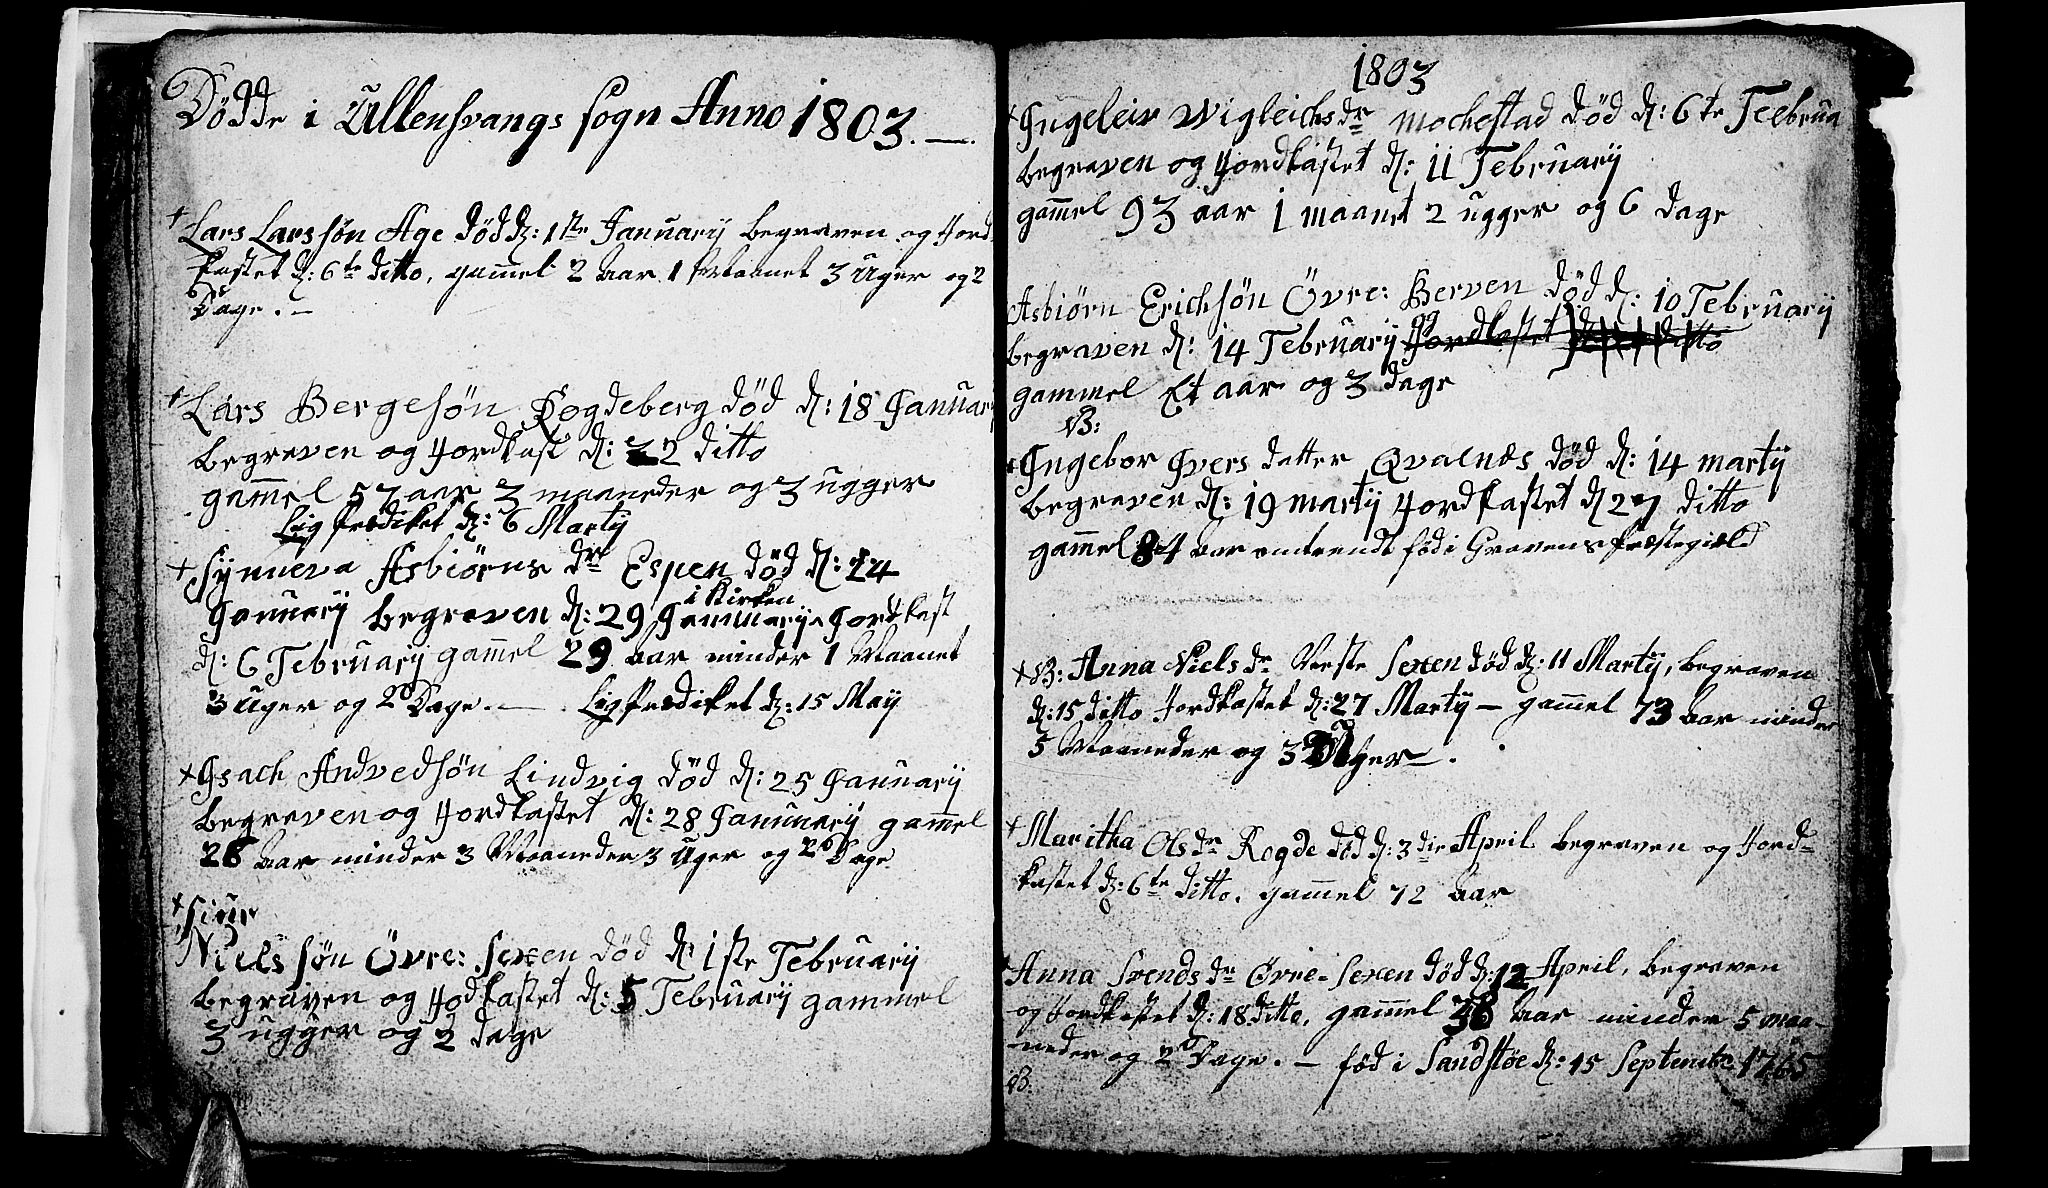 Dödde i Ullensvangs sogn Anno 1803. —.
+ Lars Larssön Age död d: 1ste Januarij begraven og Jord
kastet d: 6te ditto, gammel 2 Aar 1 Maanet 3 Uger og 2
Dage. —
+ Lars Bergesön Rogdeberg död d: 18 Januar
begraven og Jordkast d: 22 ditto
gammel 57 aar 3 maaneder og 3 ugger
Ligprædiket d: 6 Martij
+ Synneva Asbiörns dr Espen död d: 24
i Kirken
Januarij begraven d: 29 Januarij Jordkast
d: 6 Februarij gammel 29 Aar minder 1 Maanet
3 Uger og 2 Dage. — . Ligprædiket d: 15 Maij
+ Isach Andvedsön Lindvig död d: 25 Januarij
begraven og Jordkastet d: 28 Januarij gammel
28 Aar minder 3 Maaneder 3 Uger og 2 Dage
+ Siur
Nielssön Övre: Sexen död d: 1ste Februarij
begraven og Jodkastet d: 5 Februarij gammel
3 ugger og 2 dage
1803
+ Ingeleiv Wigleichsdr Mochestad död d: 6te Februa
begraven og Jordkastet d: 11 Februarij
gammel 93 aar 1 maanet 2 ugger og 6 dage
Asbiörn Erichsön Övre: Berven död d: 10 Februarij
begraven d: 14 Februarij og Jordkastet ditto
gammel Et aar og 3 dage
NB:
+ Ingebor Ivers datter Qvalnæs död d: 14 martij
begraven d: 19 martij Jordkastet d 27 ditto
gammel 84 Aar omtrendt föd i Gravens Præstegield
+ NB: Anna Nielsdr Neste Sexen död d: 11 Martij, begraven
d: 15 ditto Jordkastet d: 27 Martij — gammel 73 Aar minder
5 Maaneder og 3 Uger —.
+ Maritha Olsdr Rogde död d: 3die April begraven og Jord-
kastet d: 6te ditto. gammel 72 Aar
Anna Svendsdr Övre-Sexen död d: 12 April, begraven
og Jordkastet d: 18 ditto, gammel 38 Aar minder 5 maa-
neder og 2 Dage. — föd i Sandstöe d: 15 Septembr 1765
NB.